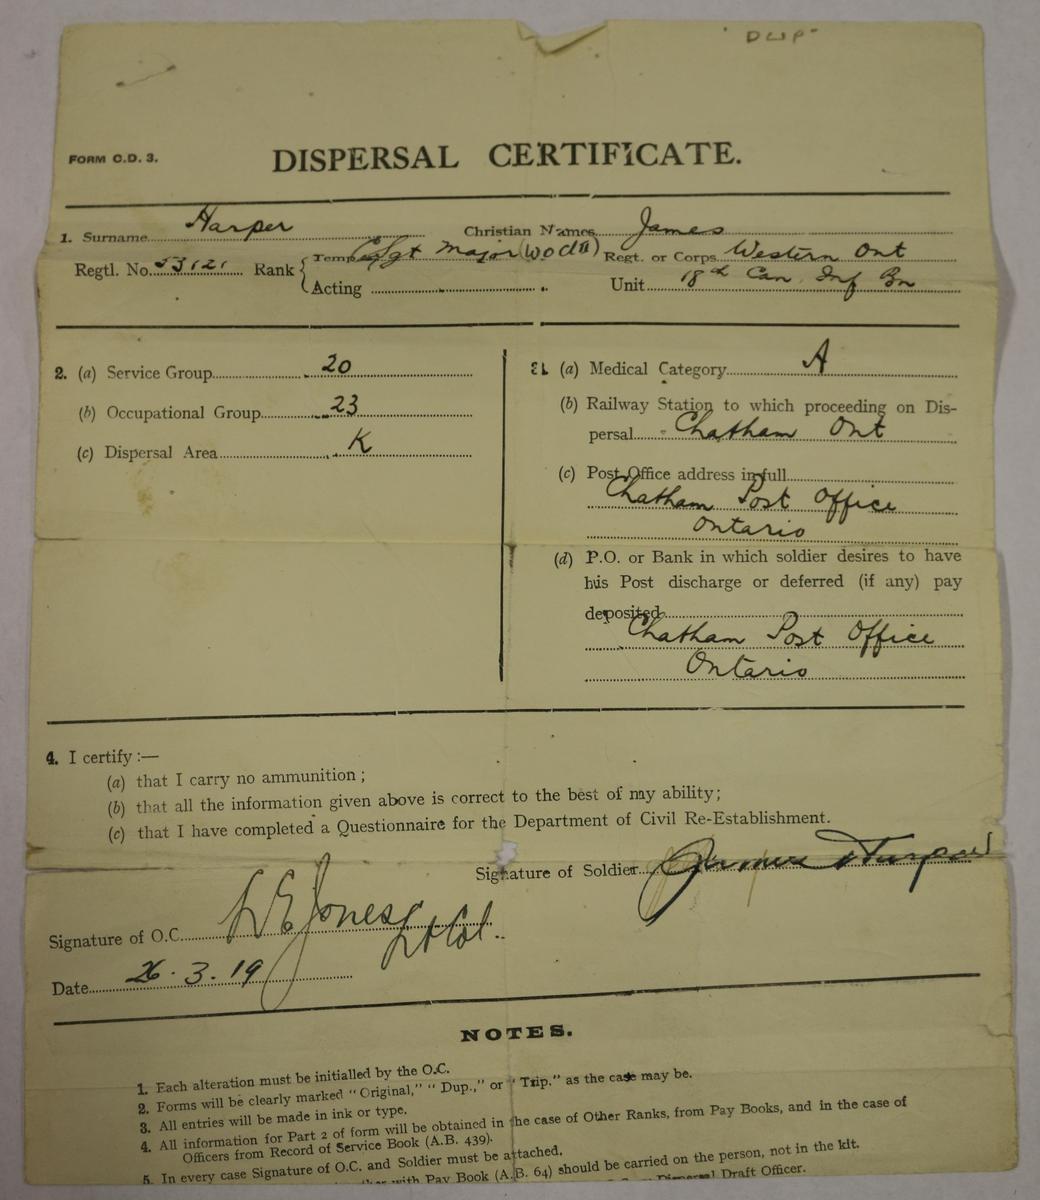 "DUP"
FORM C.D. 3.
DISPERSAL CERTIFICATE.
1. Surname Harper Christian Names James
Regtl. No. 53121 Rank { Temp CSgt Major (WO cl II) Regt. or Corps Western Ont
Acting Unit 18th Can. Inf Bn
2. (a) Service Group 20
(b) Occupational Group 23
(c) Dispersal Area K
3. (a) Medical Category A
(b) Railway Station to which proceeding on Dis-
persal Chatham Ont
(c) Post Office address in full
Chatham Post Office
Ontario
(d) P.O. or Bank in which soldier desires to have
his Post discharge or deferred (if any) pay
deposited
Chatham Post Office
Ontario
4. I certify :—
(a) that I carry no ammunition ;
(b) that all the information given above is correct to the best of my ability;
(c) that I have completed a Questionnaire for the Department of Civil Re-Establishment.
Signature of Soldier James Harper
Signature of O.C. L E Jones Lt Col.
Date 26.3.19
NOTES.
1. Each alteration must be initialled by the O.C.
2. Forms will be clearly marked "Original," "Dup.," or "Trip." as the case may be.
3. All entries will be made in ink or type.
4. All information for Part 2 of form will be obtained in the case of Other Ranks, from Pay Books, and in the case of
Officers from Record of Service Book (A.B. 439).
5. In every case Signature of O.C. and Soldier must be attached.
with Pay Book (A.B. 64) should be carried on the person, not in the kit.
Dispersal Draft Officer.